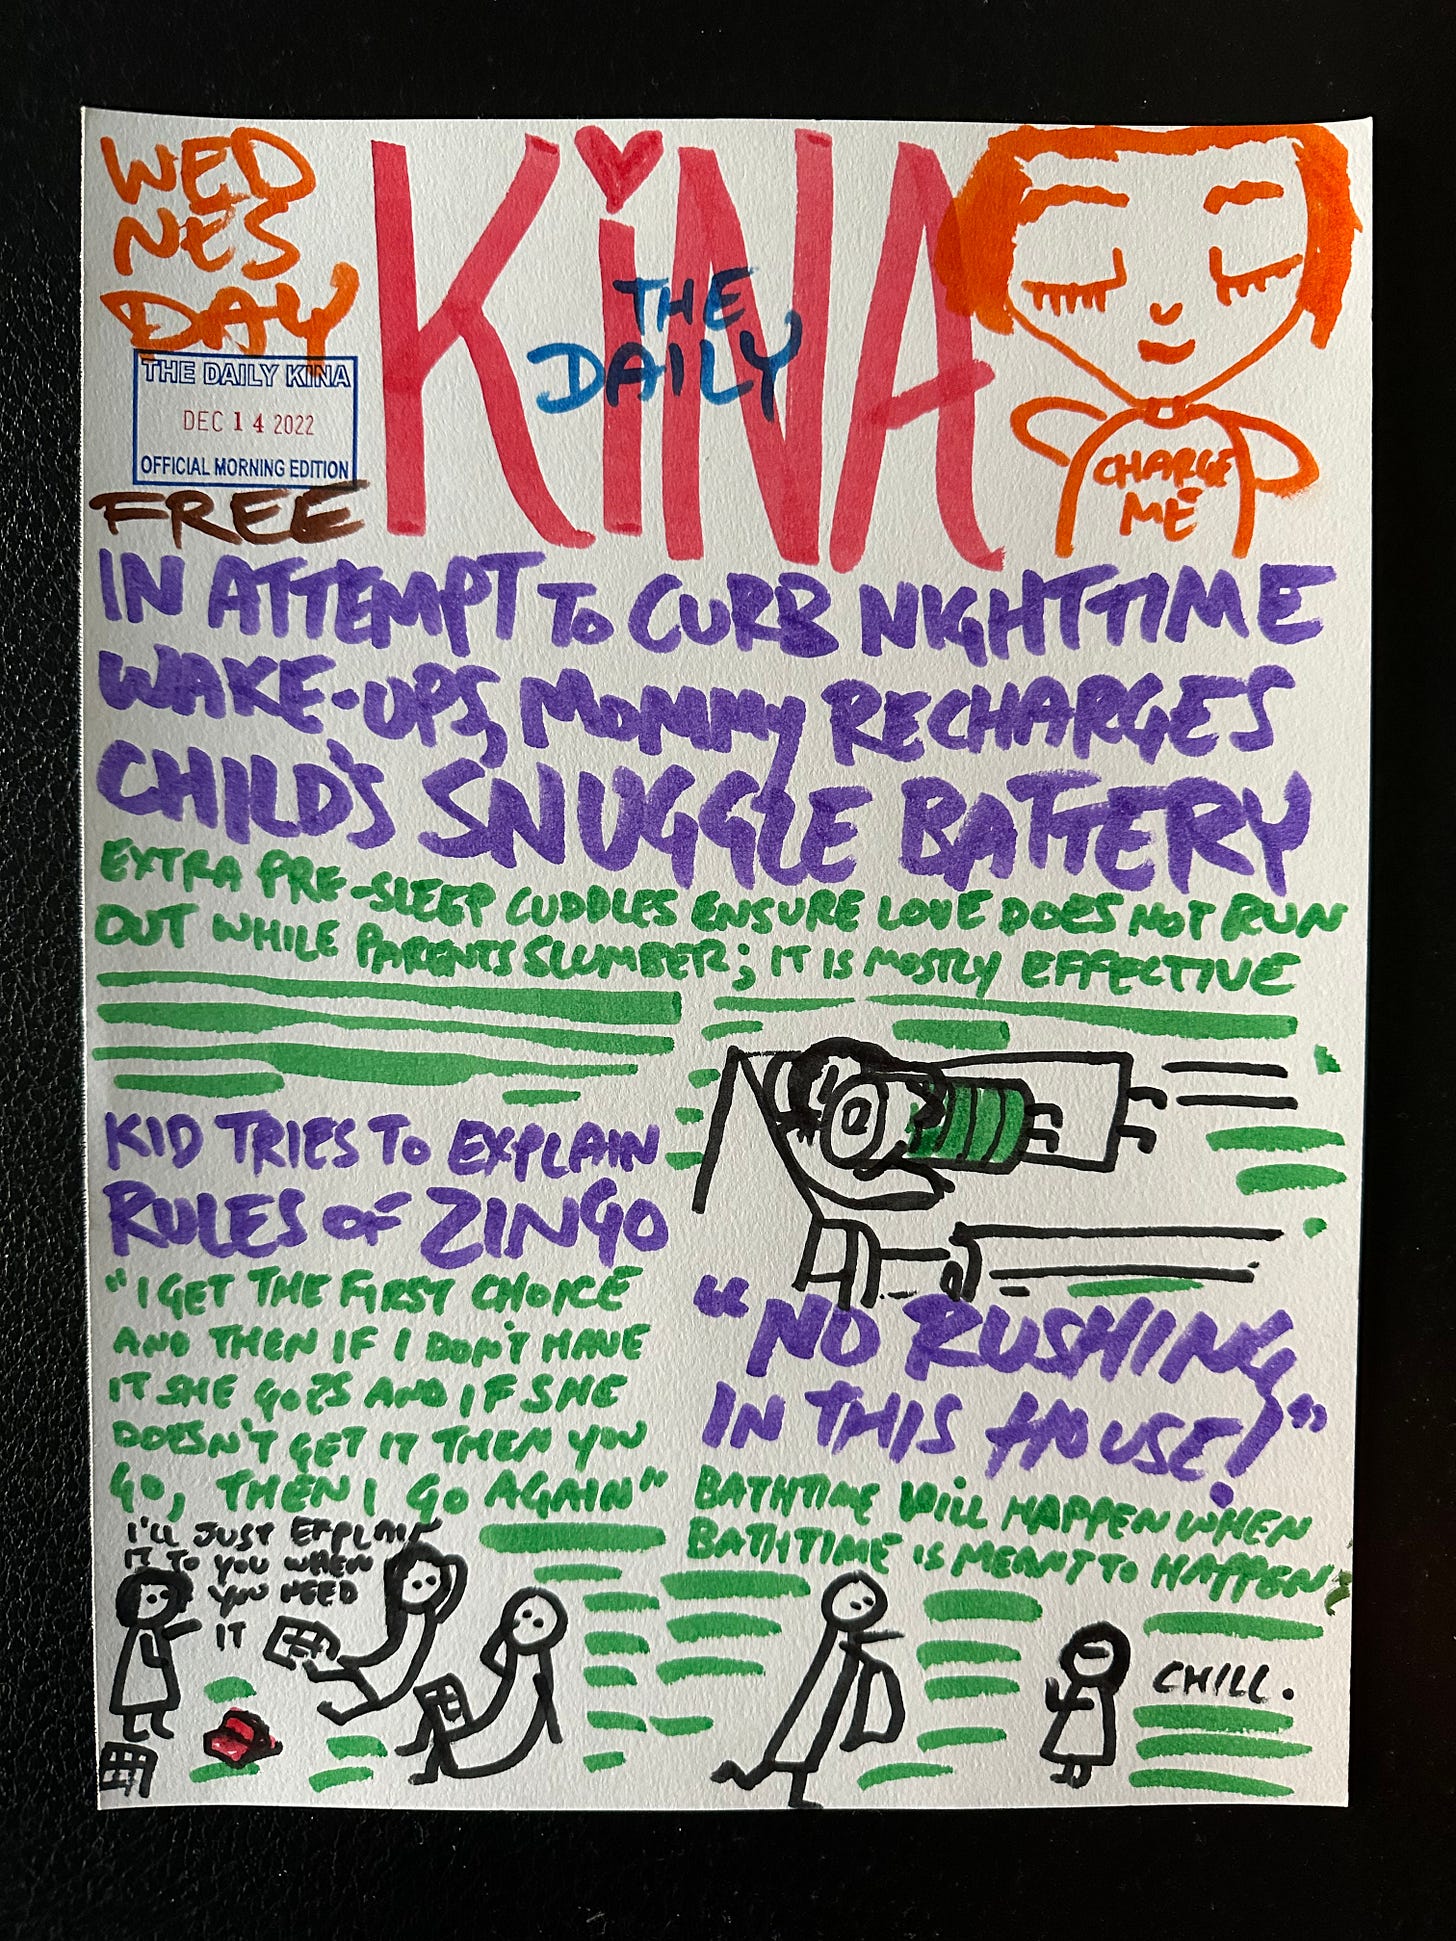 WED
NES
DAY
THE DAILY KINA
DEC 14 2022
OFFICIAL MORNING EDITION
FREE
KiNA
THE
DAILY
CHARGE
ME
IN ATTEMPT TO CURB NIGHTTIME
WAKE-UPS, MOMMY RECHARGES
CHILD'S SNUGGLE BATTERY
EXTRA PRE-SLEEP CUDDLES ENSURE LOVE DOES NOT RUN
OUT WHILE PARENTS SLUMBER; IT IS MOSTLY EFFECTIVE
KID TRIES TO EXPLAIN
RULES OF ZINGO
"I GET THE FIRST CHOICE
AND THEN IF I DON'T HAVE
IT SHE GOES AND IF SHE
DOESN'T GET IT THEN YOU
GO, THEN I GO AGAIN"
I'LL JUST EXPLAIN
IT TO YOU WHEN
YOU NEED
IT
"NO RUSHING
IN THIS HOUSE!"
BATHTIME WILL HAPPEN WHEN
BATHTIME IS MEANT TO HAPPEN;
CHILL.